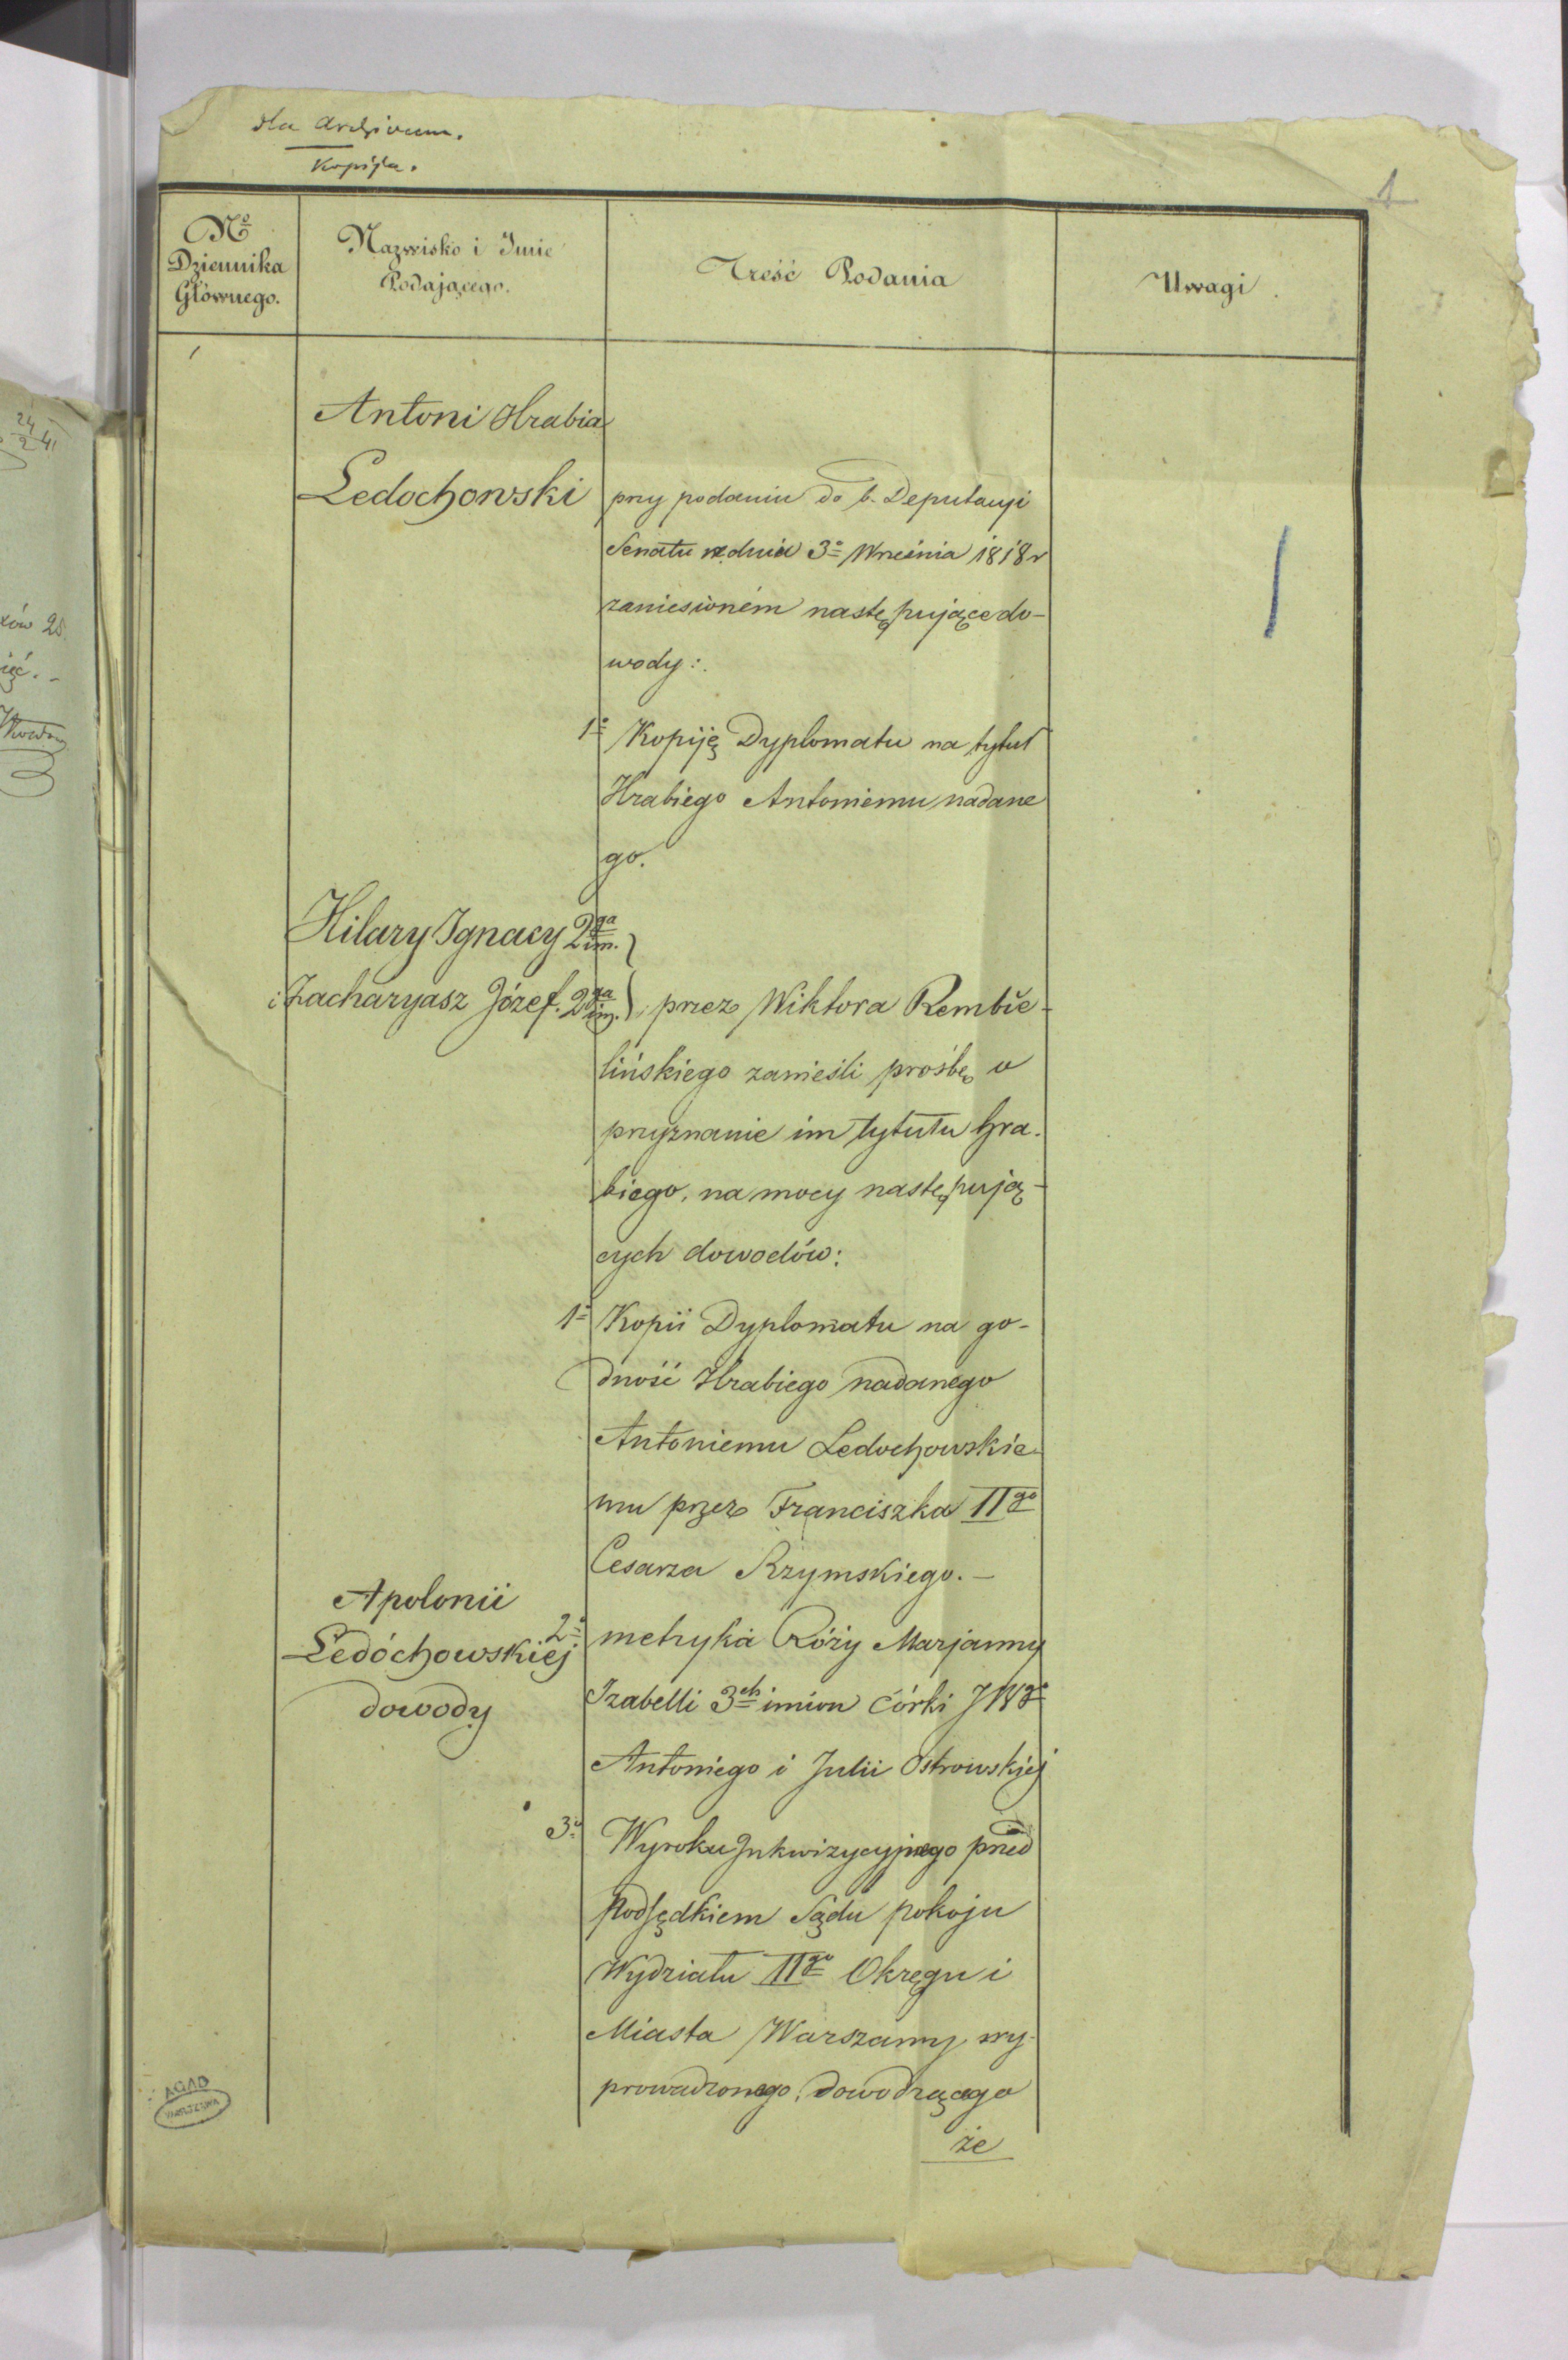 dla Archivum.
Kopija.
1
No
Dziennika
Głównego.
Nazwisko i Imie
Podającego.
Treść Podania
Uwagi.
Antoni Hrabia
Ledochowski
przy podaniu do b. Deputacyi
Senatu w dniu 3o Września 1818 r
zaniesioném następujące do-
wody:
1o Kopiję Dyplomatu na tytuł
Hrabiego Antoniemu nadane
go.
Hilary Ignacy 2ga im.
i Zacharyasz Józef. 2ga im. przez Wiktora Rembie-
lińskiego zanieśli prośbę o
przyznanie im tytułu hra-
biego, na mocy następują-
cych dowodów:
1o Kopii Dyplomatu na go-
dność Hrabiego nadanego
Antoniemu Ledochowskie-
mu przez Franciszka IIgo
Cesarza Rzymskiego. –
Apolonii
Ledóchowskiéj
dowody
2o metryka Róży Marjanny
Izabelli 3ch imion Córki JWgo
Antoniego i Julii Ostrowskiéj
3o Wyroku Inkwizycyjnego przed
Podsędkiem Sądu pokoju
Wydziału IIgo Okręgu i
Miasta Warszawy wy-
prowadzonego, dowodzącego
że
AGAD
WARSZAWA
24
2 41
ów 25.
ięć. –